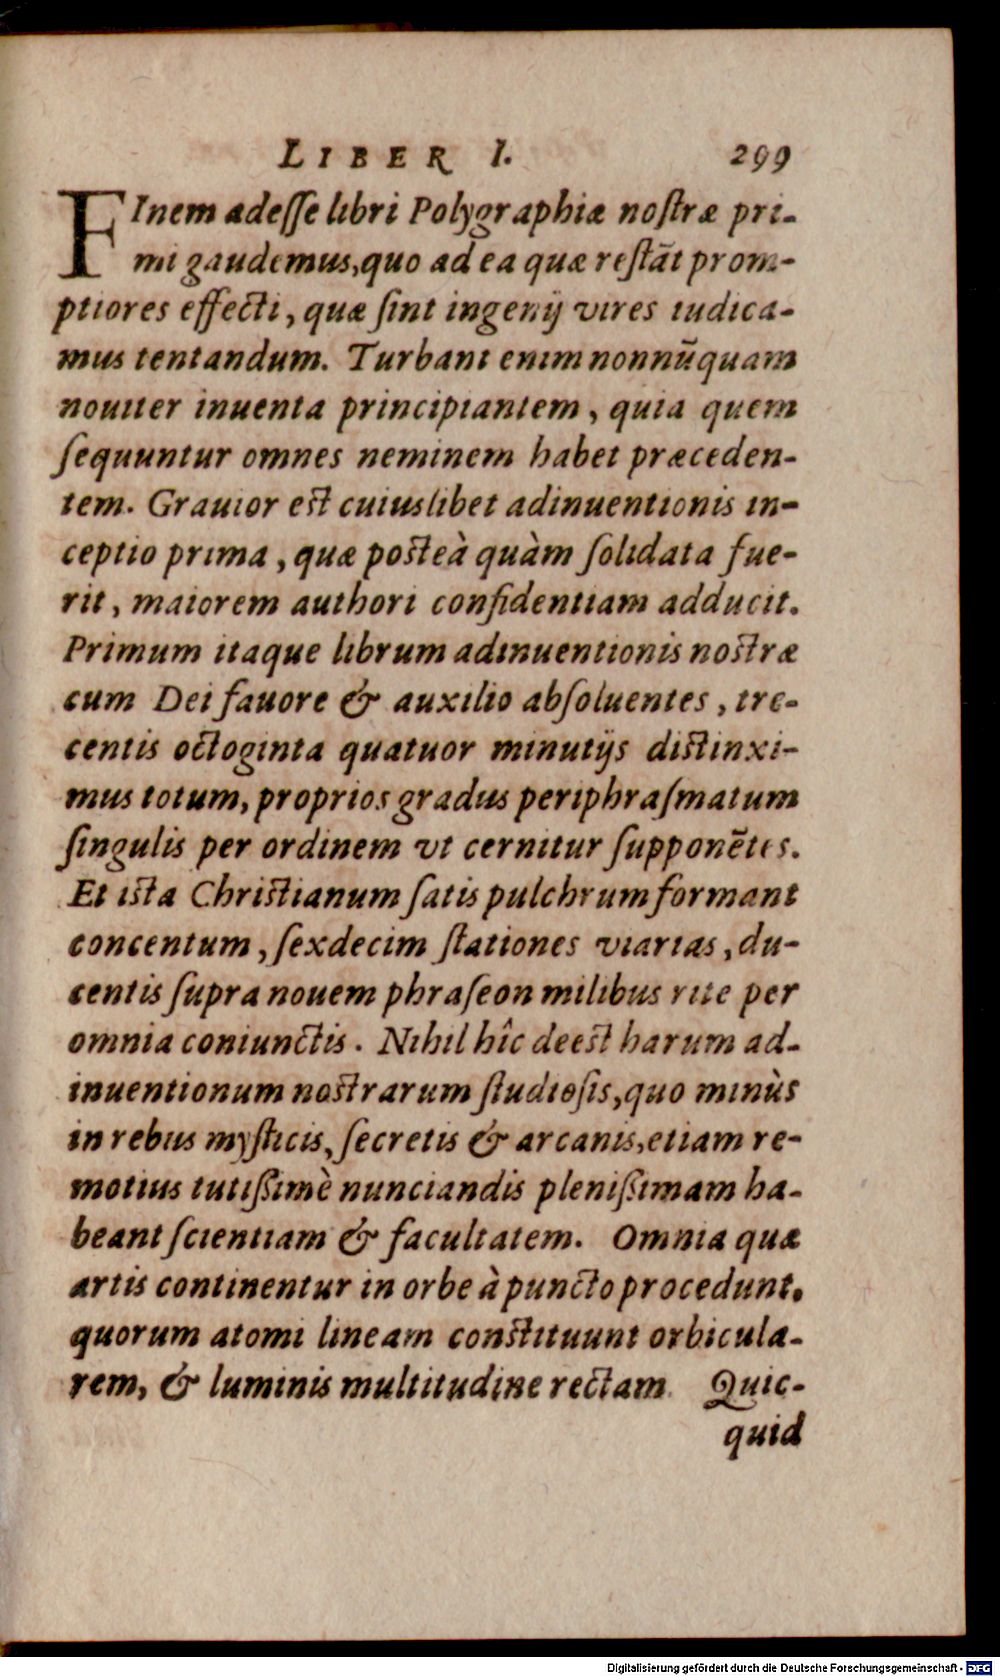 LIBER I. 299
FInem adesse libri Polygraphiæ nostræ pri-
mi gaudemus,quo ad ea quæ restãt prom-
ptiores effecti, quæ sint ingenij vires iudica-
mus tentandum. Turbant enim nonnũquam
nouiter inuenta principiantem, quia quem
sequuntur omnes neminem habet præceden-
tem. Grauior est cuiuslibet adinuentionis in-
ceptio prima, quæ posteà quàm solidata fue-
rit, maiorem authori confidentiam adducit.
Primum itaque librum adinuentionis nostræ
cum Dei fauore & auxilio absoluentes, tre-
centis octoginta quatuor minutijs distinxi-
mus totum, proprios gradus periphrasmatum
singulis per ordinem vt cernitur supponẽtes.
Et ista Christianum satis pulchrum formant
concentum, sexdecim stationes viarias, du-
centis supra nouem phraseon milibus rite per
omnia coniunctis. Nihil hîc deest harum ad-
inuentionum nostrarum studiosis,quo minùs
in rebus mysticis, secretis & arcanis,etiam re-
motius tutissimè nunciandis plenissimam ha-
beant scientiam & facultatem. Omnia quæ
artis continentur in orbe à puncto procedunt.
quorum atomi lineam constituunt orbicula-
rem, & luminis multitudine rectam. Quic-
quid
Digitalisierung gefördert durch die Deutsche Forschungsgemeinschaft - DFG